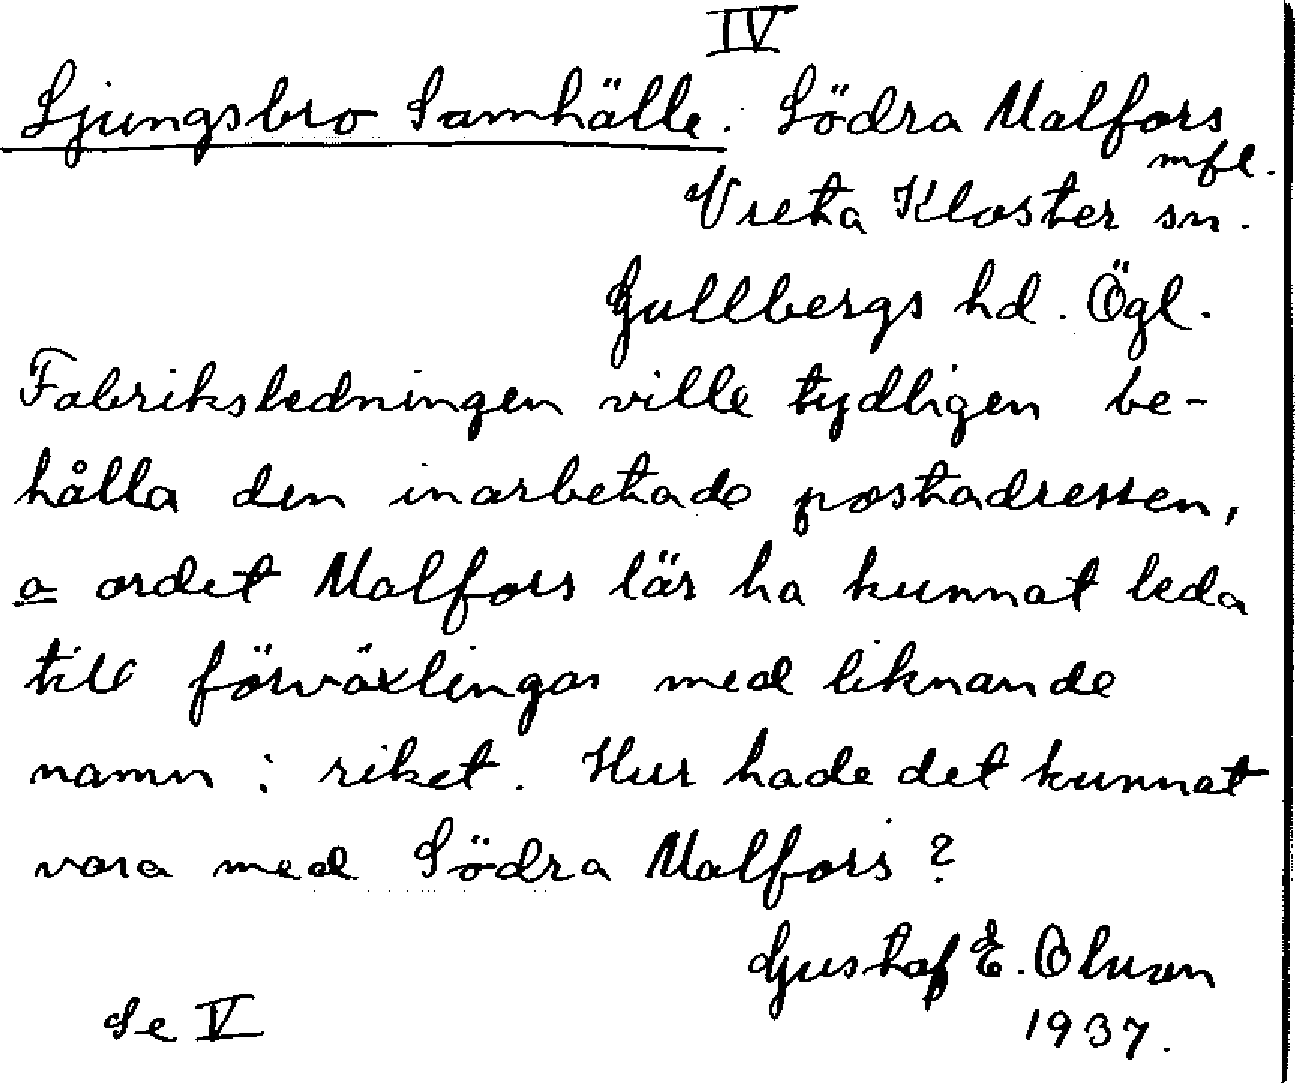 IV
Ljungsbro Samhälle. Södra Malfors
mfl.
Vreta Kloster sn.
Gullbergs hd. Ögl.
Fabriksledningen ville tydligen be-
hålla den inarbetade postadressen,
o ordet Malfors lär ha kunnat leda
till förväxlingar med liknande
namn i riket. Hur hade det kunnat
vara med Södra Malfors?
Gustaf E. Olsson
1937.
Se V